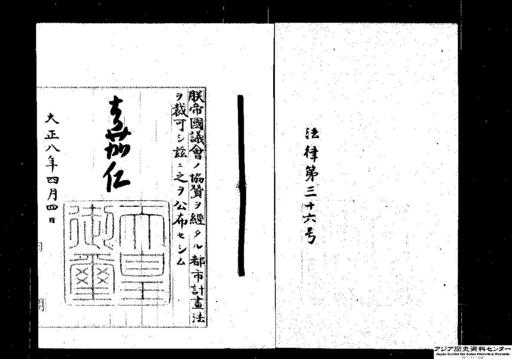 法律第三十六号
朕帝國議會ノ協賛ヲ經タル都市計畫法
ヲ裁可シ茲ニ之ヲ公布セシム
嘉仁
天皇
御璽
大正八年四月四日
アジア歴史資料センター
Japan Center for Asian Historical Records